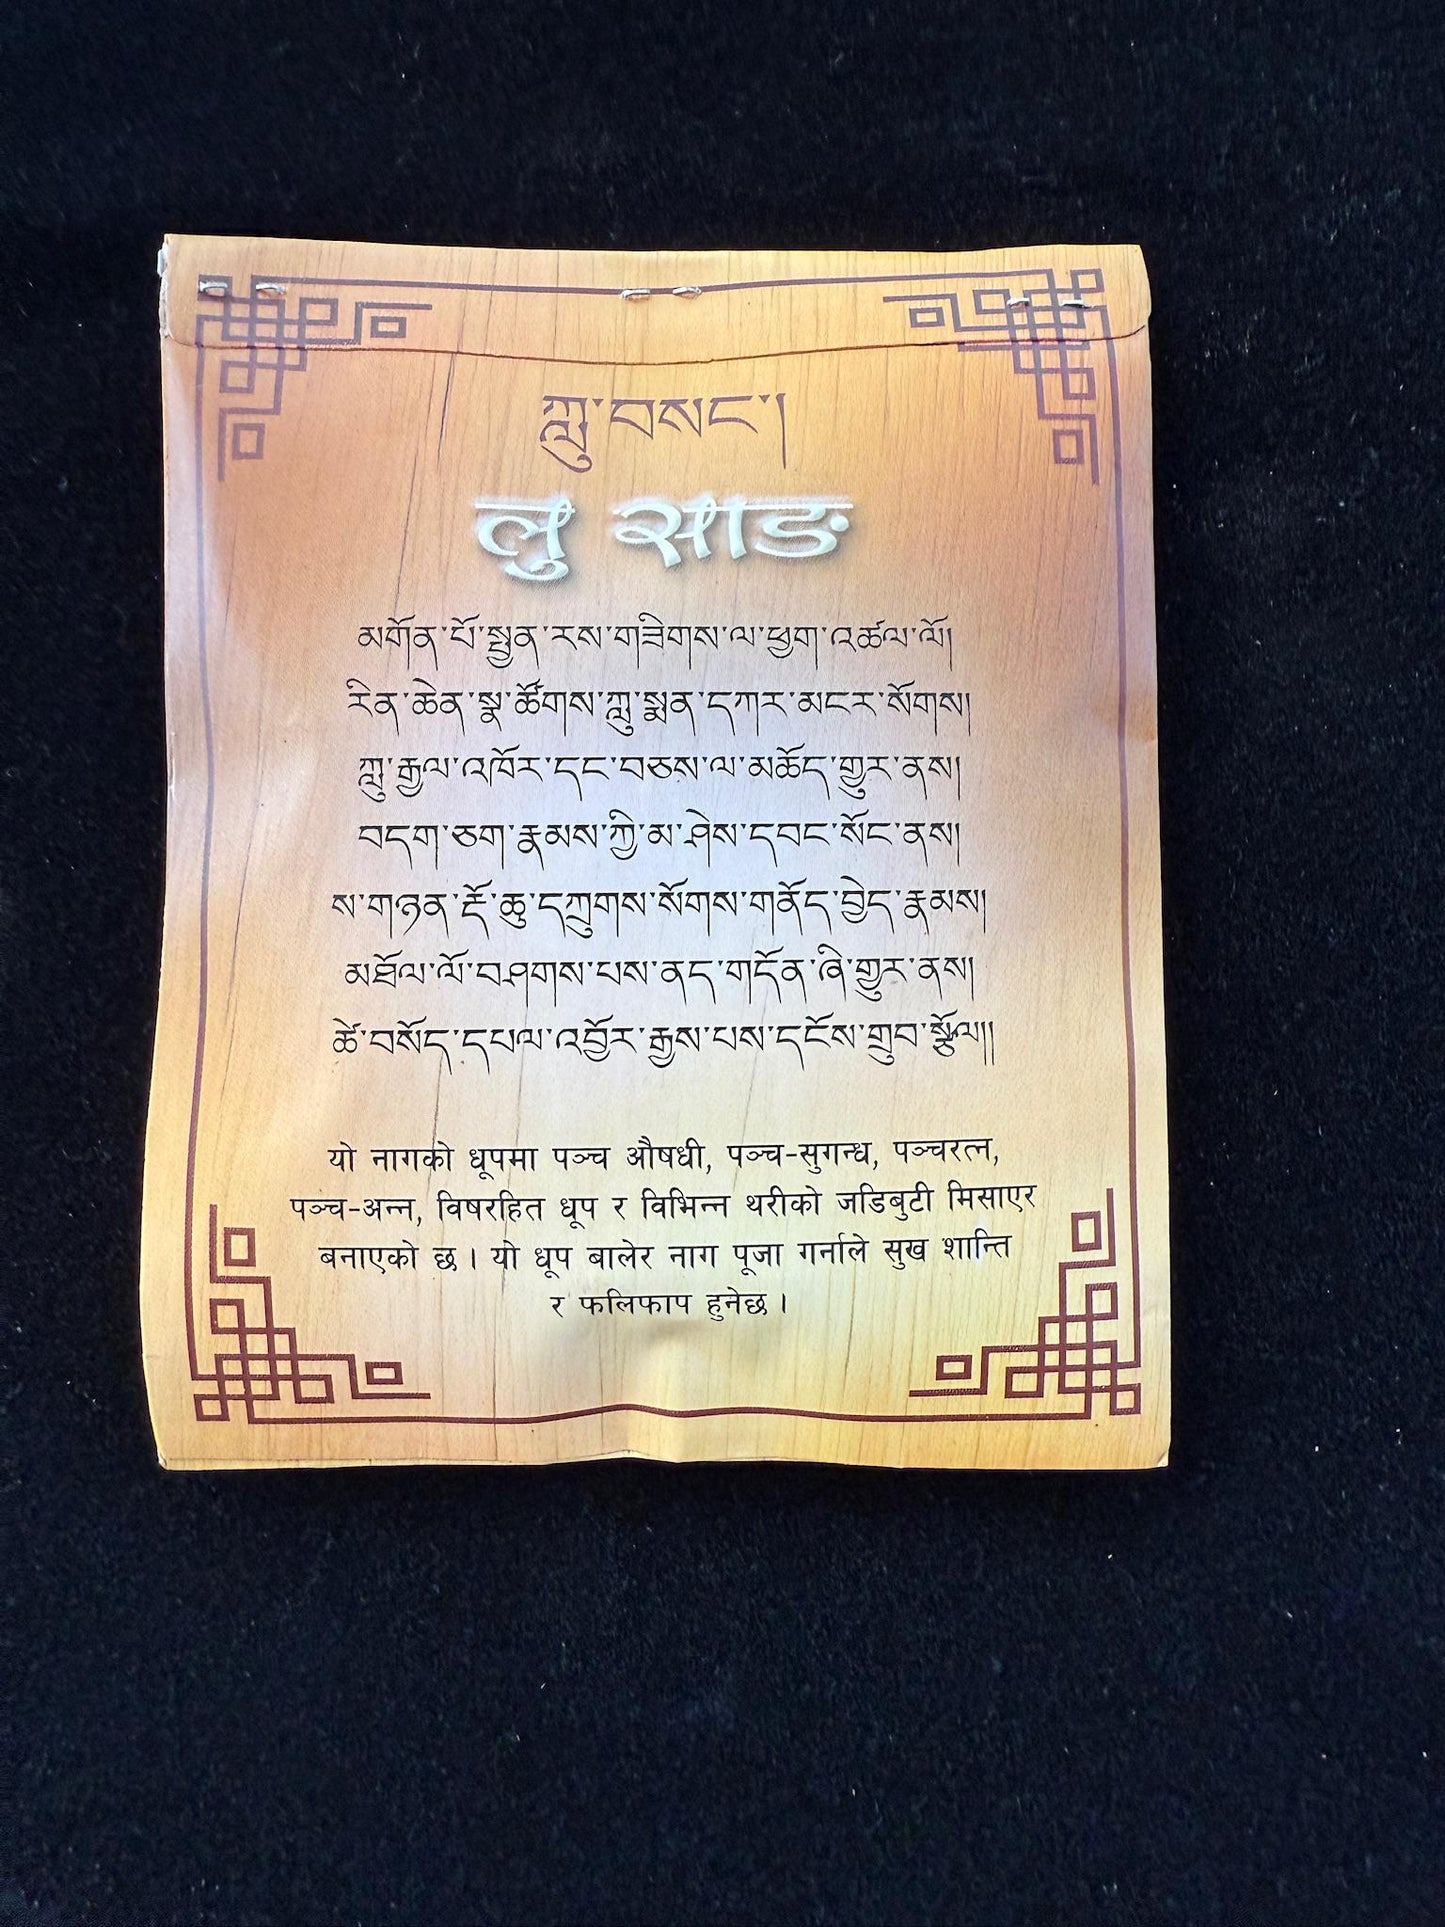 ཀླུ་བསང་།
लु साङ
མགོན་པོ་སྤྱན་རས་གཟིགས་ལ་ཕྱག་འཚལ་ལོ།
རིན་ཆེན་སྣ་ཚོགས་ཀླུ་སྨན་དཀར་མངར་སོགས།
ཀླུ་རྒྱལ་འཁོར་དང་བཅས་ལ་མཆོད་གྱུར་ནས།
བདག་ཅག་རྣམས་ཀྱི་མ་ཤེས་དབང་སོང་ནས།
ས་གཉན་རྡོ་ཆུ་དཀྲུགས་སོགས་གནོད་བྱེད་རྣམས།
མཐོལ་ལོ་བཤགས་པས་ནད་གདོན་ཞི་གྱུར་ནས།
ཚེ་བསོད་དཔལ་འབྱོར་རྒྱས་པས་དངོས་གྲུབ་སྩོལ།།
यो नागको धूपमा पञ्च औषधी, पञ्च-सुगन्ध, पञ्चरत्न,
पञ्च-अन्न, विषरहित धूप र विभिन्न थरीको जडिबुटी मिसाएर
बनाएको छ । यो धूप बालेर नाग पूजा गर्नाले सुख शान्ति
र फलिफाप हुनेछ ।